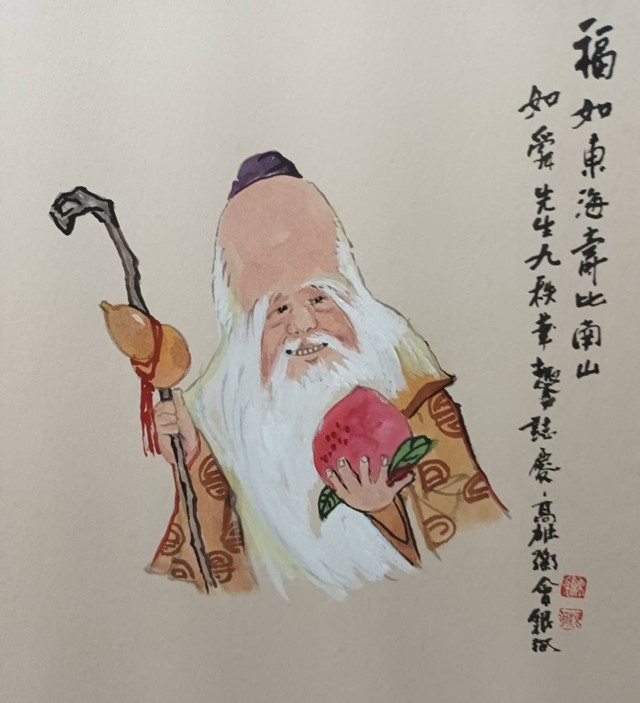 福如東海壽比南山
如舜先生九秩華誌慶 高雄 會銀